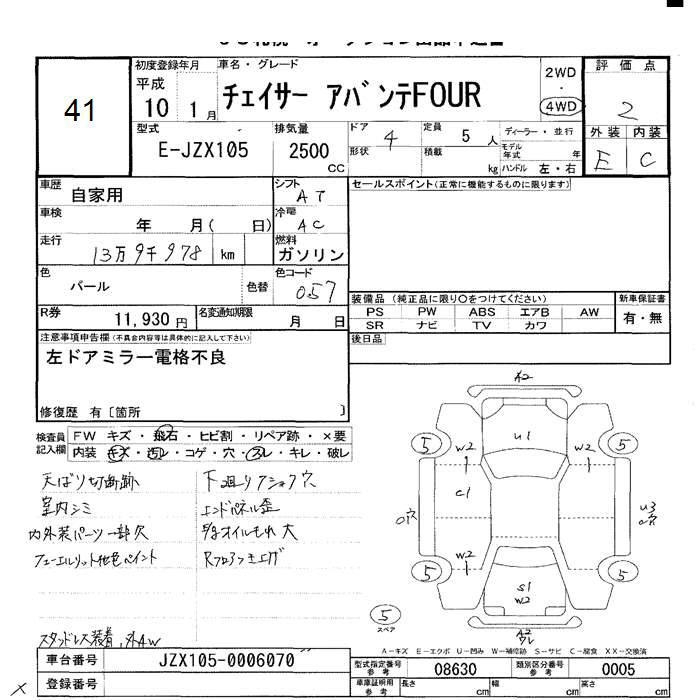 41
初度登録年月
平成
10 1月
車名・グレード
チェイサー アバンテFOUR
2WD
・
4WD
評価点
2
外装 内装
E C
型式
E-JZX105
排気量
2500
CC
ドア 4
形状
定員 5 人
積載 kg
ディーラー・並行
モデル年式 年
ハンドル 左・右
車歴
自家用
シフト
AT
車検
年 月( 日)
冷暖
AC
走行
13万9千978 km
燃料
ガソリン
色
パール
色替
色コード
057
R券
11,930円
名変通知期限
月 日
セールスポイント(正常に機能するものに限ります)
装備品(純正品に限り〇をつけてください)
PS PW ABS エアB AW
SR ナビ TV カワ
新車保証書
有・無
後日品
注意事項申告欄(不具合内容等は具体的に記入して下さい)
左ドアミラー電格不良
修復歴 有〔箇所 〕
検査員記入欄
FW キズ・飛石・ヒビ割・リペア跡・×要
内装 キズ・汚レ・コゲ・穴・スレ・キレ・破レ
天ばり切断跡
室内シミ
内外装パーツ一部欠
フューエルリット他色ペイント
スタッドレス装着、外AW
下廻りクショウ穴
エンドパネル歪
オイルもれ 大
Rフロアつき上げ
A2
5 W2 U1 W2 5
C1
穴
U3
穴
W2
5 5
S1
W2
5
スペア
A2
A-キズ E-エクボ U-凹み W-補修跡 S-サビ C-腐食 XX-交換済
車台番号
JZX105-0006070
登録番号
型式指定番号
参考
08630
類別区分番号
参考
0005
車庫証明用
参考
長さ cm 幅 cm 高さ cm
×